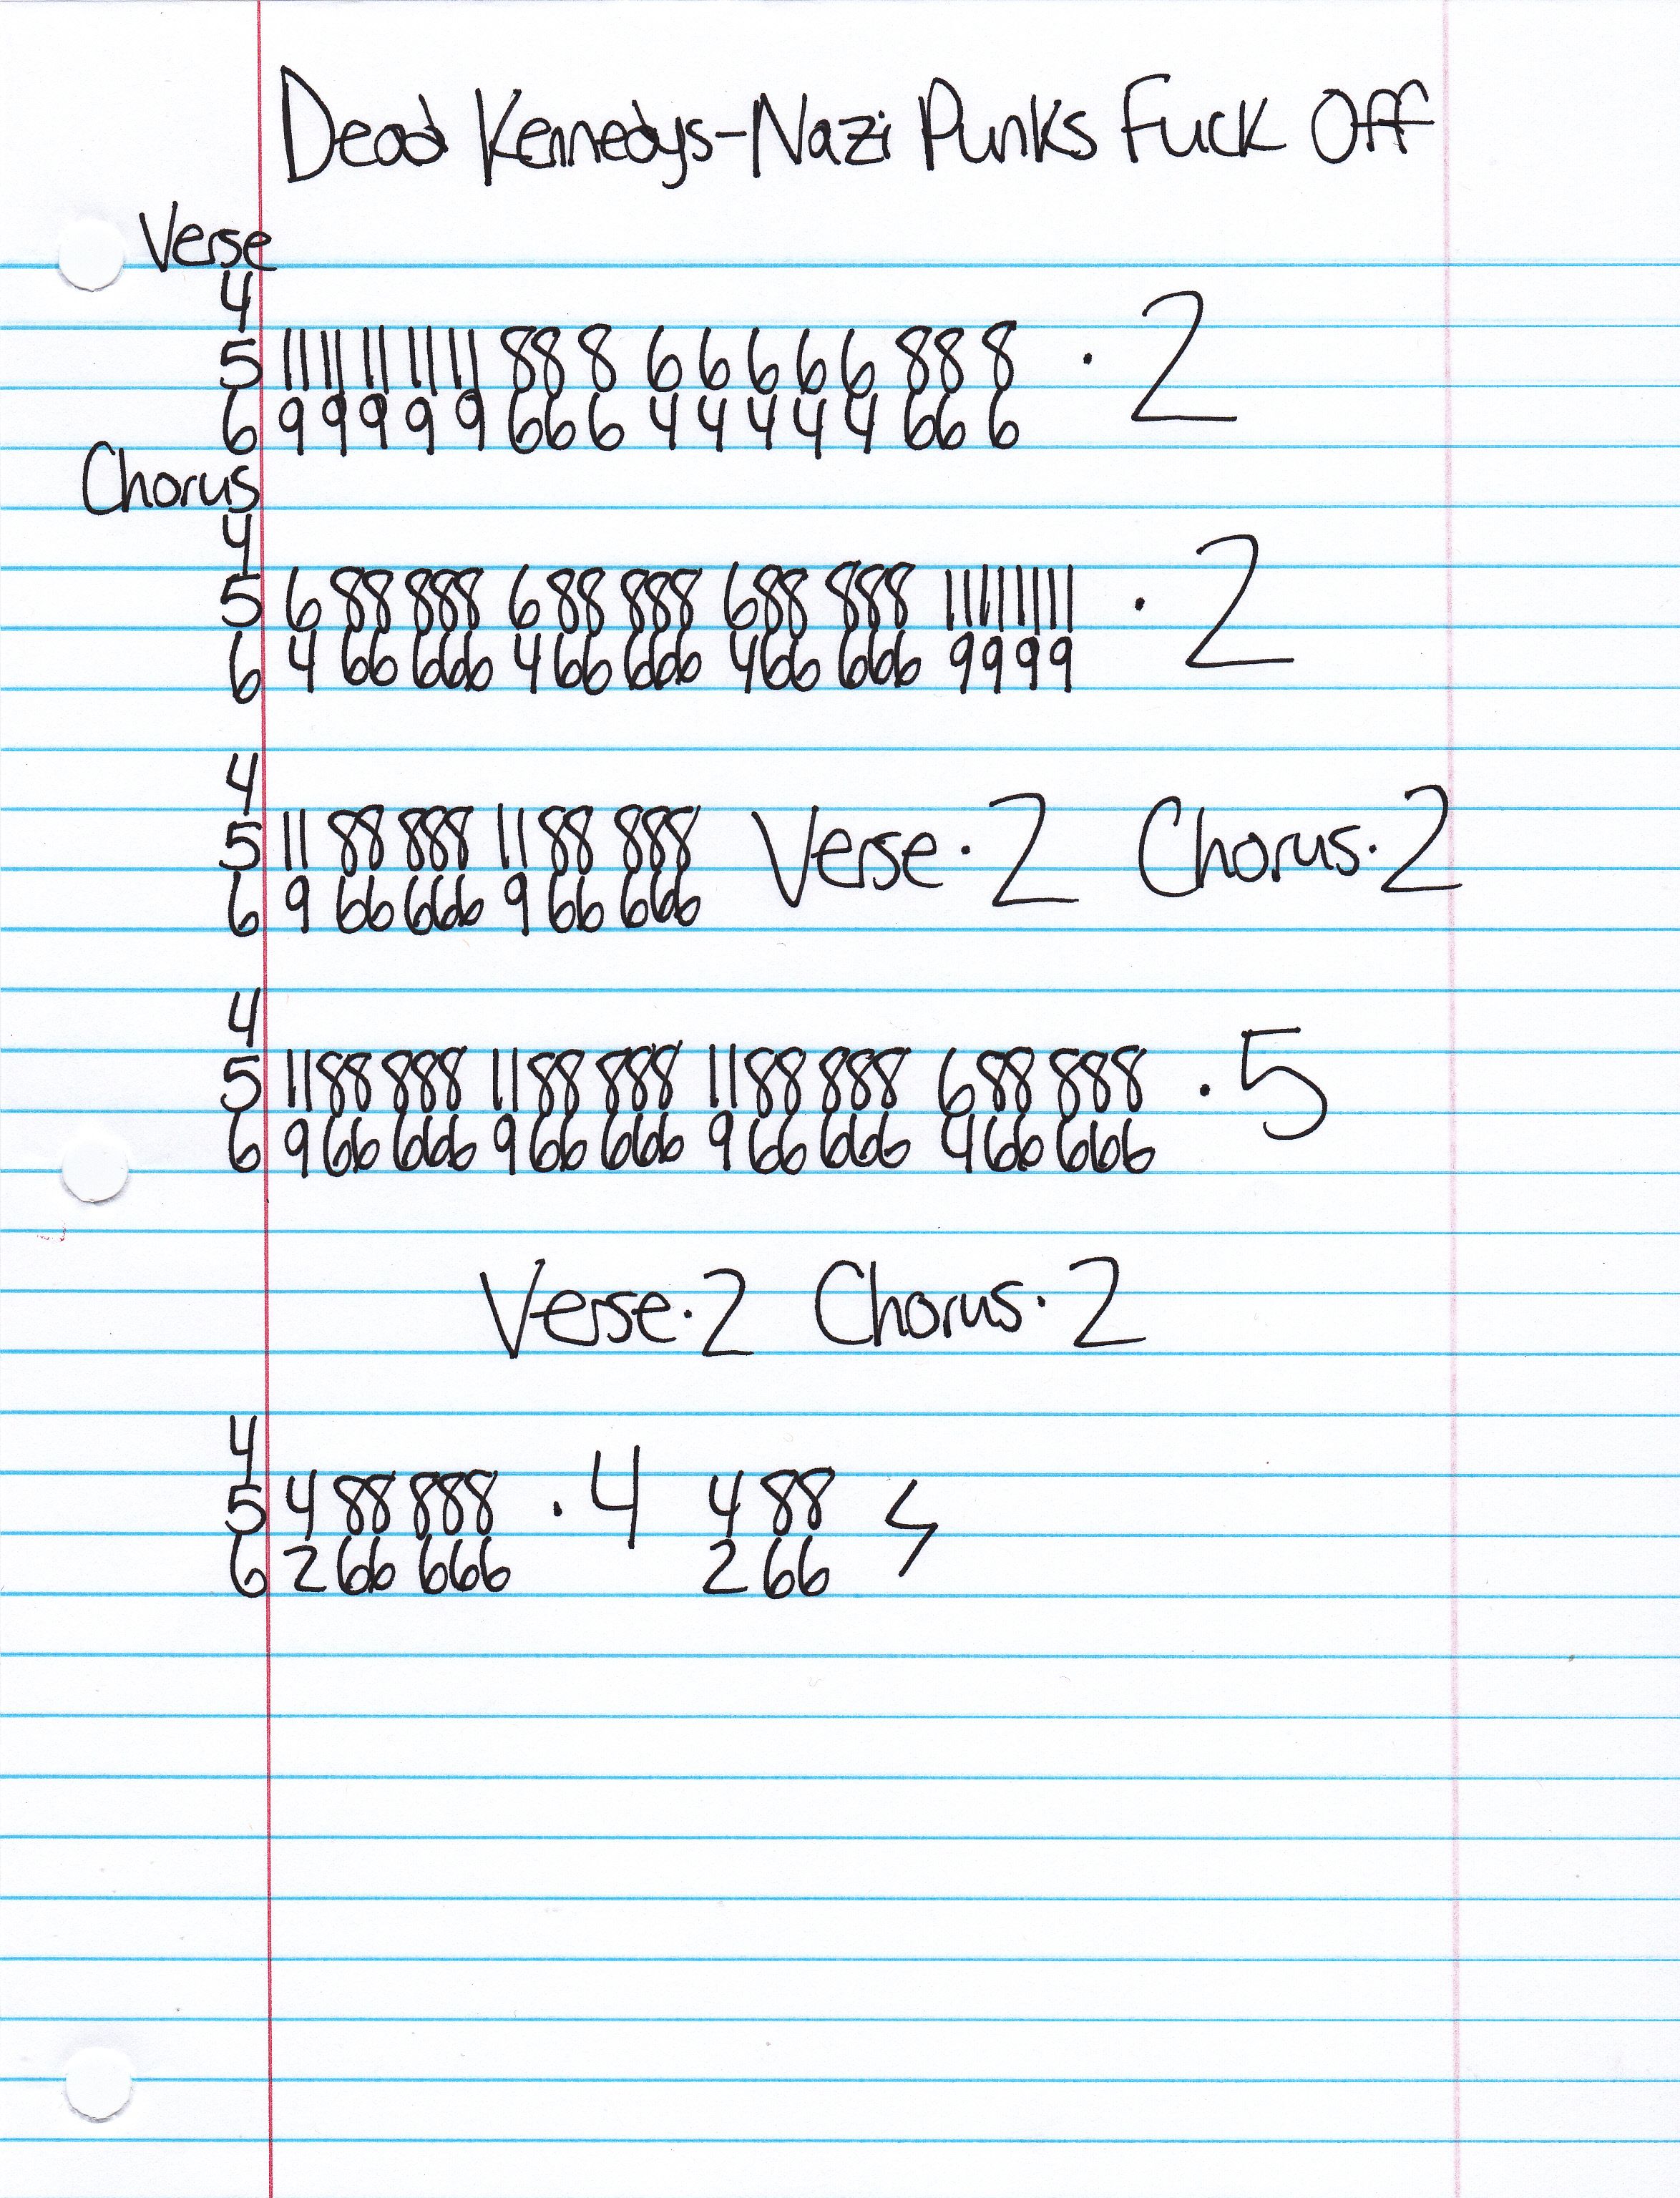 Dead Kennedys-Nazi Punks Fuck Off
Verse
4
5 11 11 11 11 11 88 8 6 6 6 6 6 88 8 · 2
6 9 9 9 9 9 66 6 4 4 4 4 4 66 6
Chorus
4
5 6 88 888 6 88 888 688 888 11111111 · 2
6 4 66 666 4 66 666 466 666 9999
4
5 11 88 888 11 88 888 Verse · 2 Chorus · 2
6 9 66 666 9 66 666
4
5 1188 888 1188 888 1188 888 688 888 · 5
6 966 666 966 666 966 666 466 666
Verse · 2 Chorus · 2
4
5 4 88 888 · 4 4 88
6 2 66 666 2 66